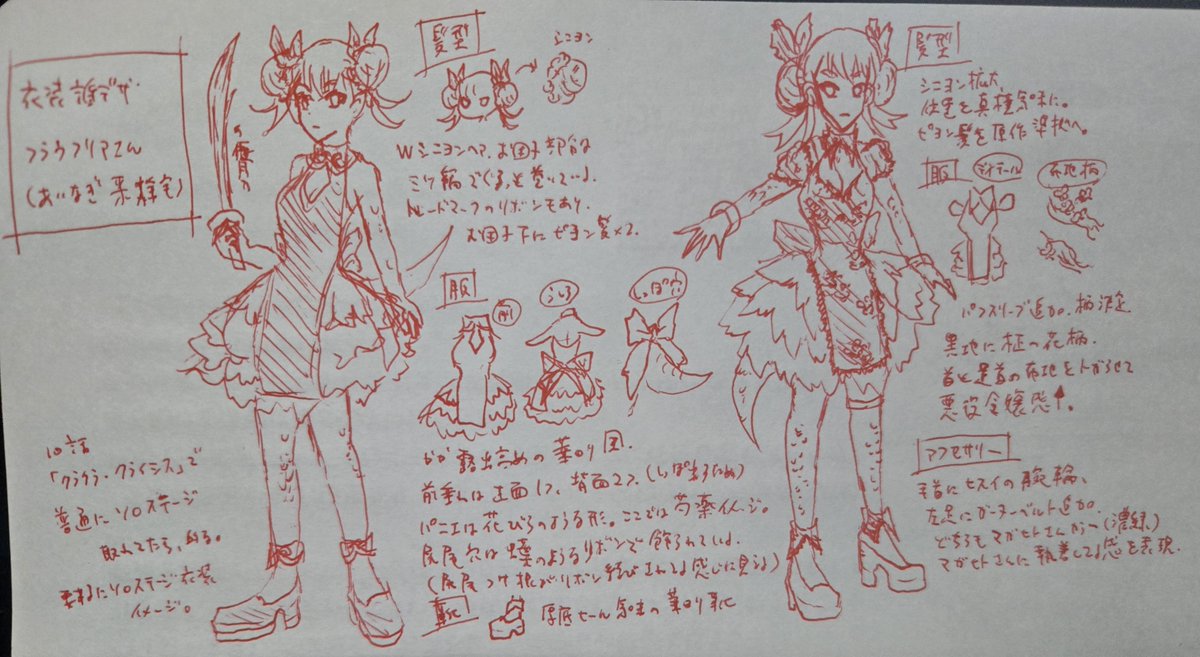 衣装誰デザ
フラウフリアエん
(あいなぎ果緑宅)
の傭員の
髪型
シニヨン
Wシニヨンヘア、お団子部分は
ミツ編でぐるっと巻いている。
トレードマークのリボンもあり。
お団子下にピヨン髪×2.
服
前
うしろ
しっぽ穴
露出高めの華ロリ風.
前垂れは正面1つ、背面2つ.(しっぽ出るため)
パニエは花びらのような形。ここでは芍薬イメージ。
尻尾穴は蝶のようなリボンで飾られている.
(尻尾つけ根がリボン結びされてる感じに見える)
靴
厚底ヒール気味の華ロリ靴
10話
「クラウラ・クライシス」で
普通にソロステージ
取れてたら、出る。
要するにソロステージ衣装
イメージ。
髪型
シニヨン拡大、
位置を真横気味に。
ピヨン髪を原作 染状へ。
服
ディテール
布地柄
パフスリーブ追加.柄決定
黒地に極の花柄.
首と足首の布地をトガらせて
悪役令嬢感↑。
アクセサリー
手首にヒスイの腕輪、
左足にガーターベルト追加.
どちらもマガヒトさんカラー(濃緑)
マガヒトさんに執着してる感を表現.